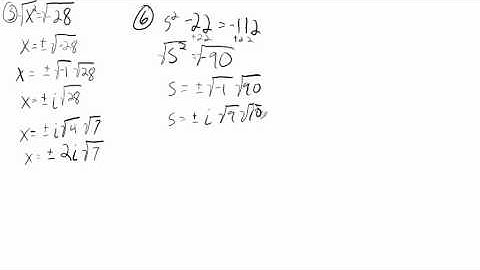 ③ √x² = √-28
x = ± √-28
x = ± √-1 √28
x = ± i √28
x = ± i √4 √7
x = ± 2i √7
⑥ s² - 22 = -112
+22 +22
√s² = √-90
s = ± √-1 √90
s = ± i √9 √10